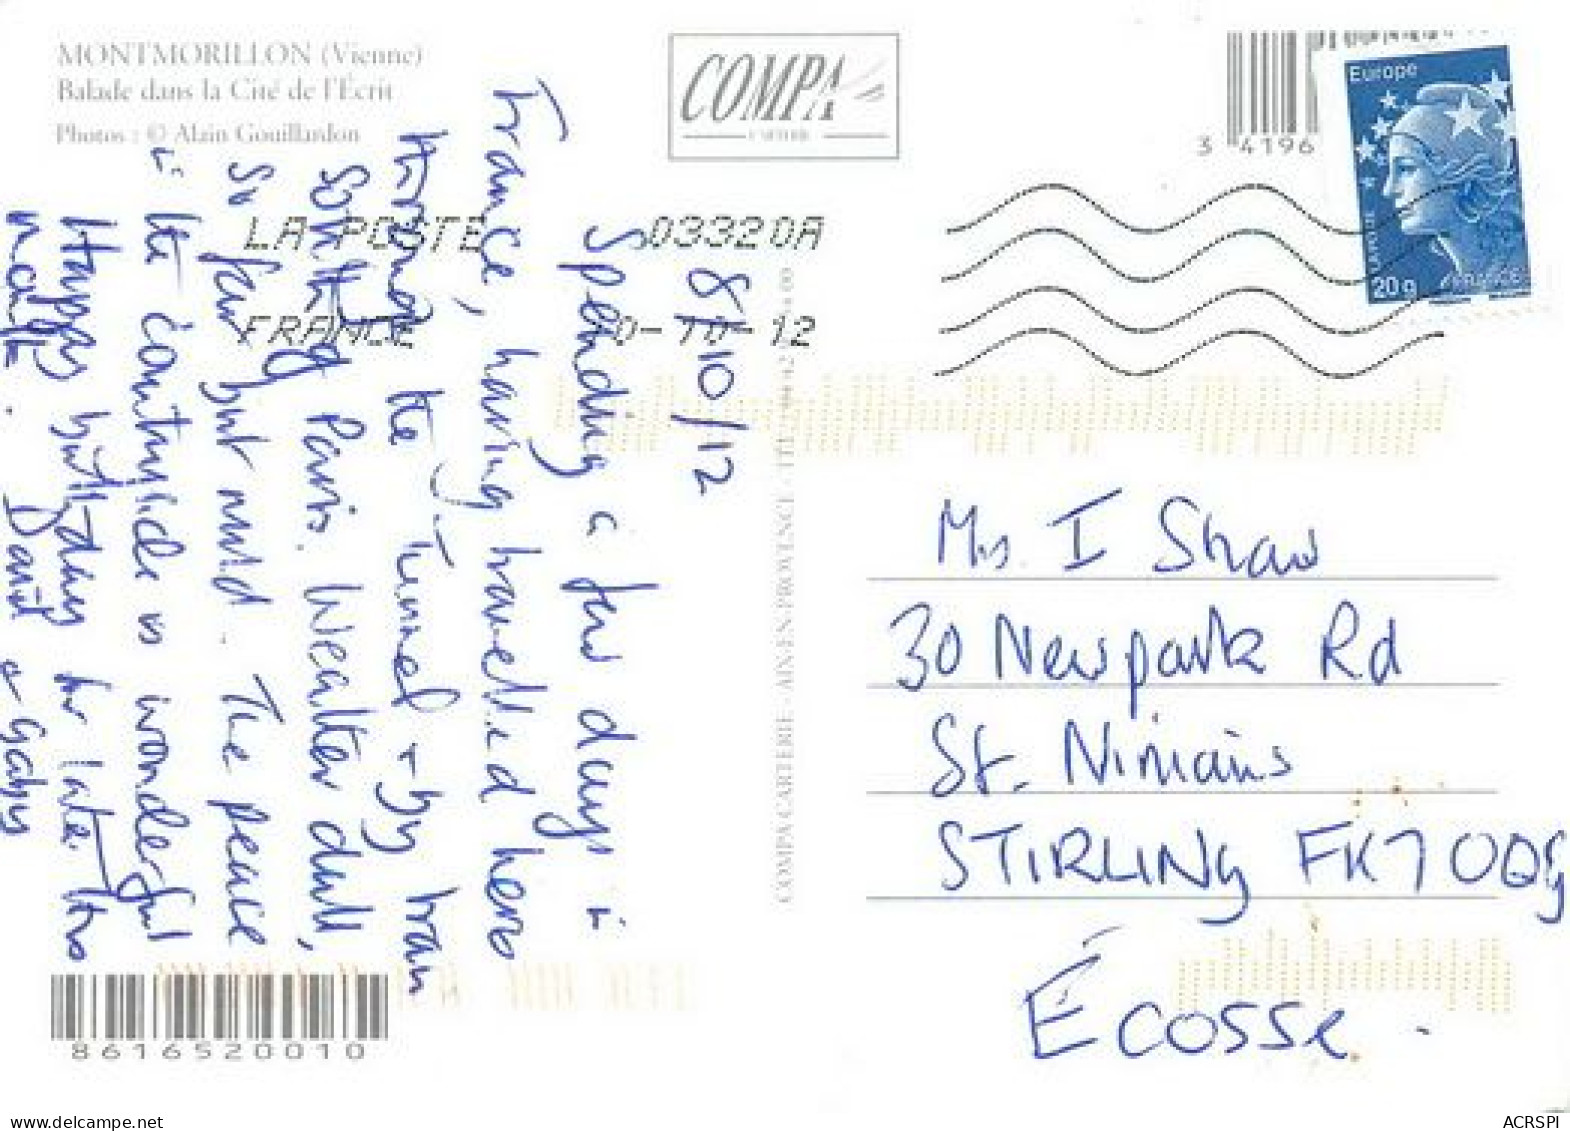 MONTMORILLON (Vienne)
Balade dans la Cité de l'Écrit
Photos : © Alain Gouillardon
COMPA
CARTERIE
3 4196
Europe
LA POSTE
20g
FRANCE
LA POSTE 03320A
FRANCE 10-10-12
8/10/12
Spending a few days in
France, having travelled here
through the Tunnel + by train
Paris. Weather dull,
so far but mild. The peace
in the countryside is wonderful
Happy birthday for later this
month. David + Gaby
COMPA CARTERIE - AIX-EN-PROVENCE
Mrs I Shaw
30 Newpark Rd
St. Ninians
STIRLING FK7 0QG
Écosse.
8616520010
ACRSPI